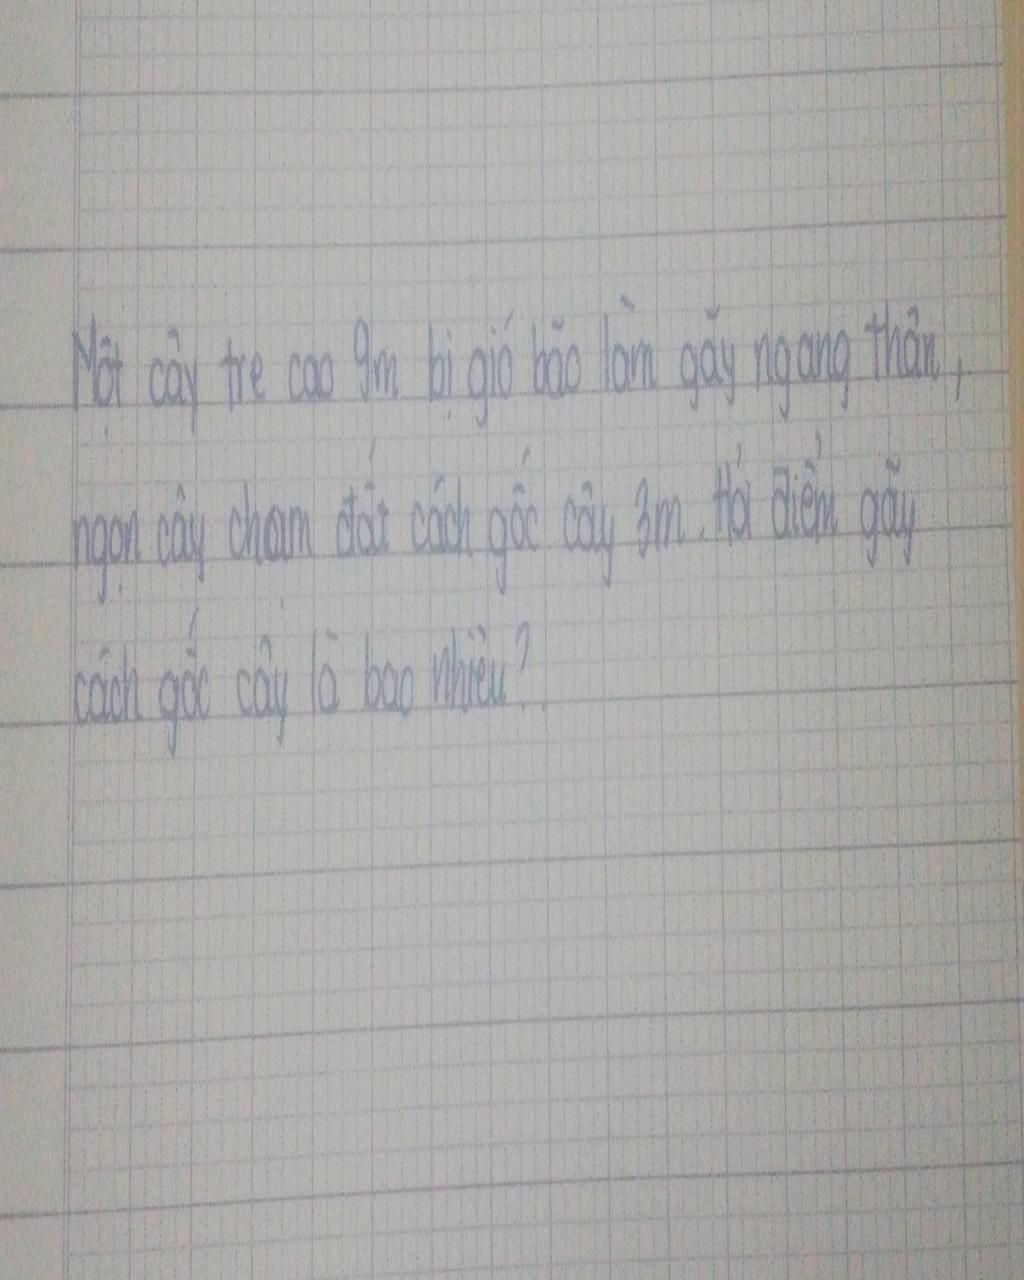 Một cây tre cao 9m bị gió bão làm gãy ngang thân,
ngọn cây chạm đất cách gốc cây 3m. Hỏi điểm gãy
cách gốc cây là bao nhiêu?